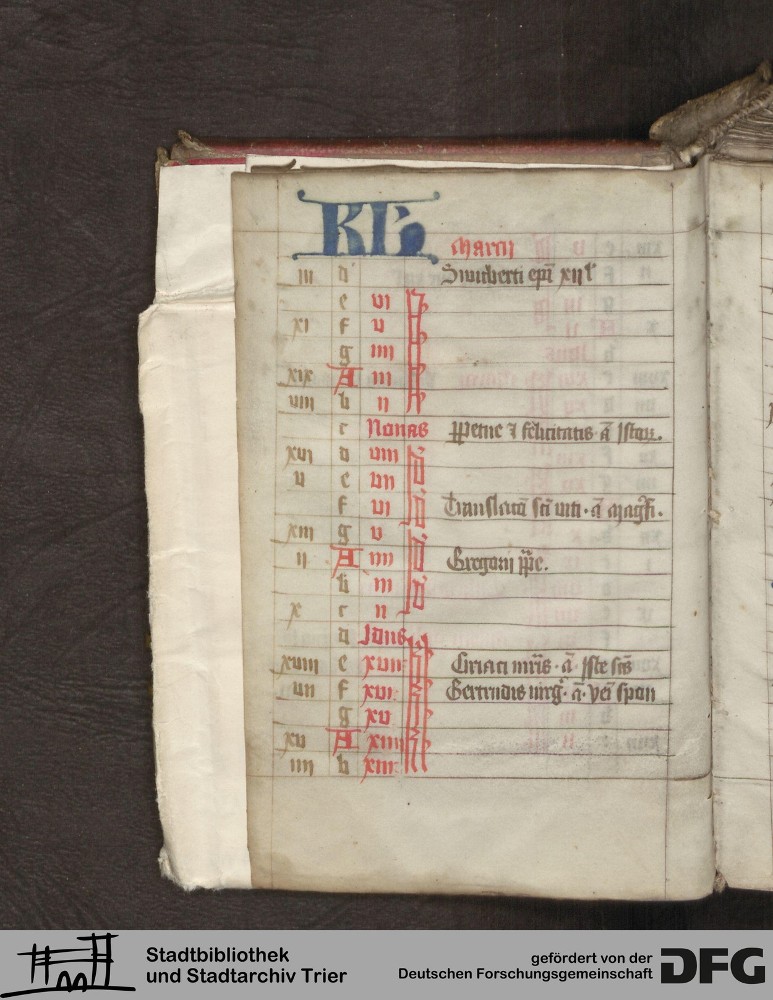 KL
Marcii
iii d Switberti epī xii l
e vi
xi f v
g iiii
xix A iii
viii b ii
c Nonas Ppetue ⁊ felicitatis · ā Istarꝝ.
xvi d viii
v e vii
f vi Translacō scī viti · ā magͥfi.
xiii g v
ii A iiii Gregorii pp̄e.
b iii
x c ii
d Idus
xviii e xvii Ciriaci mr̄is · ā · Iste scs̄
vii f xvi Gertrudis virgͥ · ā · veī spon
g xv
xv A xiiii
iiii b xiii
Stadtbibliothek
und Stadtarchiv Trier
gefördert von der
Deutschen Forschungsgemeinschaft
DFG